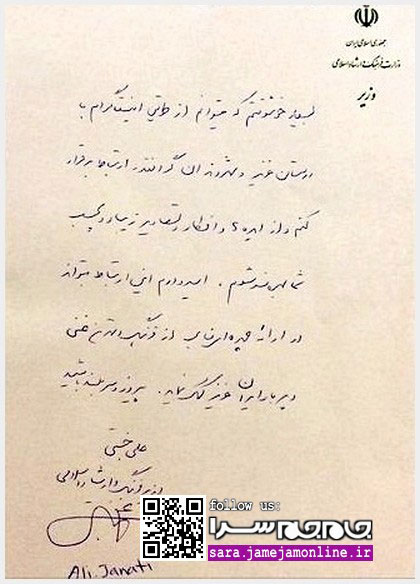 جمهوری اسلامی ایران
وزارت فرهنگ و ارشاد اسلامی
وزیر
بسیار خوشوقتم که میتوانم از طریق اینستاگرام با
دوستان عزیز و شهروندان گرانقدر ارتباط برقرار
کنم و از ایده ها و افکار و تصاویر زیبا و دلچسب
شما بهره مند شوم. امیدوارم این ارتباط بتواند
در ارائه چهره ای جالب از فرهنگ و تمدن غنی
و پربار ایران عزیز کمک نماید. پیروز و سربلند باشید
علی جنتی
وزیر فرهنگ و ارشاد اسلامی
Ali. Janati
follow us:
جام جم سرا
sara.jamejamonline.ir